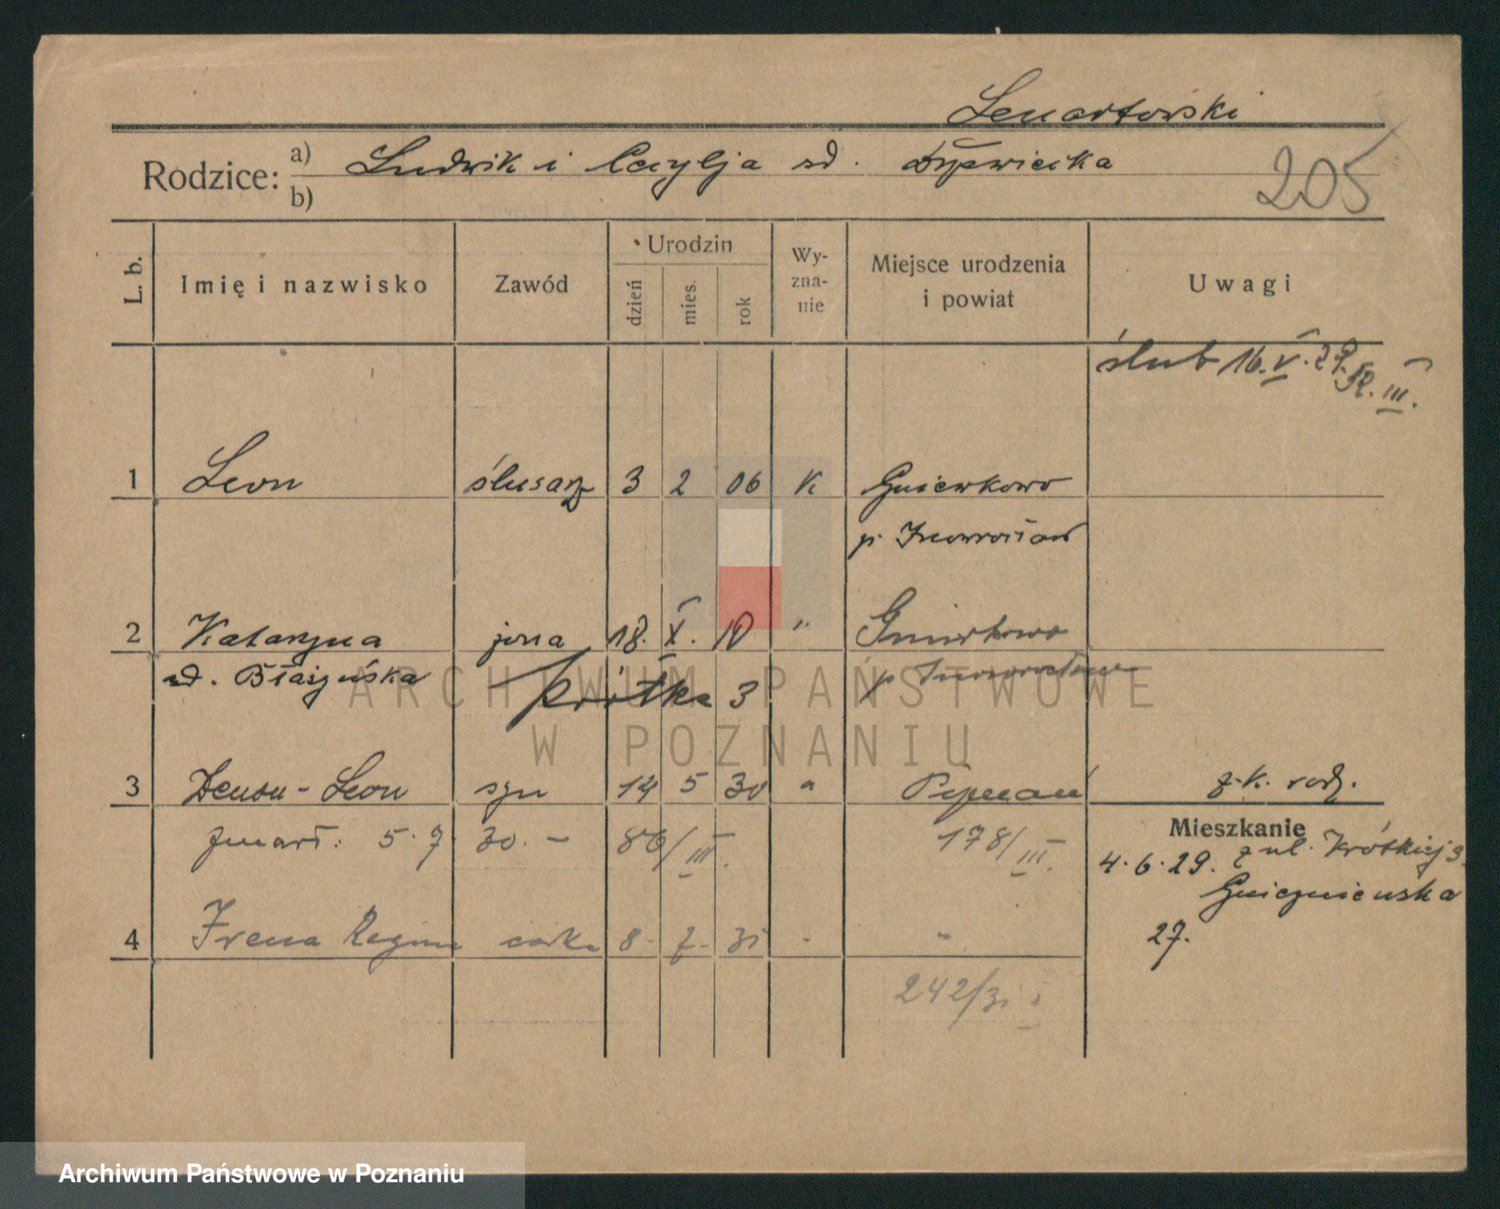 Lenartowski
Rodzice: a) Ludwik i Cecylja zd.
b)
205
L. b.
Imię i nazwisko
Zawód
Urodzin
dzień
mies.
rok
Wy-
zna-
nie
Miejsce urodzenia
i powiat
Uwagi
ślub 16.V.29. III.
1 Leon ślusarz 3 2 06 K Gniewkowo
p. Inowrocław
2 Katarzyna żona 18. X. 10 " Gniewkowo
zd. Błażyńska p Inowrocław
Krótka 3
3 Zenon-Leon syn 14 5 30 " Poznań z.k. rodz.
zmarł. 5.7. 30.- 86/III. 178/III.
Mieszkanie
4.6.29. z ul. Krótkiej 3
Gnieźnieńska
27.
4 Irena Regina córka 8. 7. 31 " "
242/31
ARCHIWUM PAŃSTWOWE
W POZNANIU
Archiwum Państwowe w Poznaniu